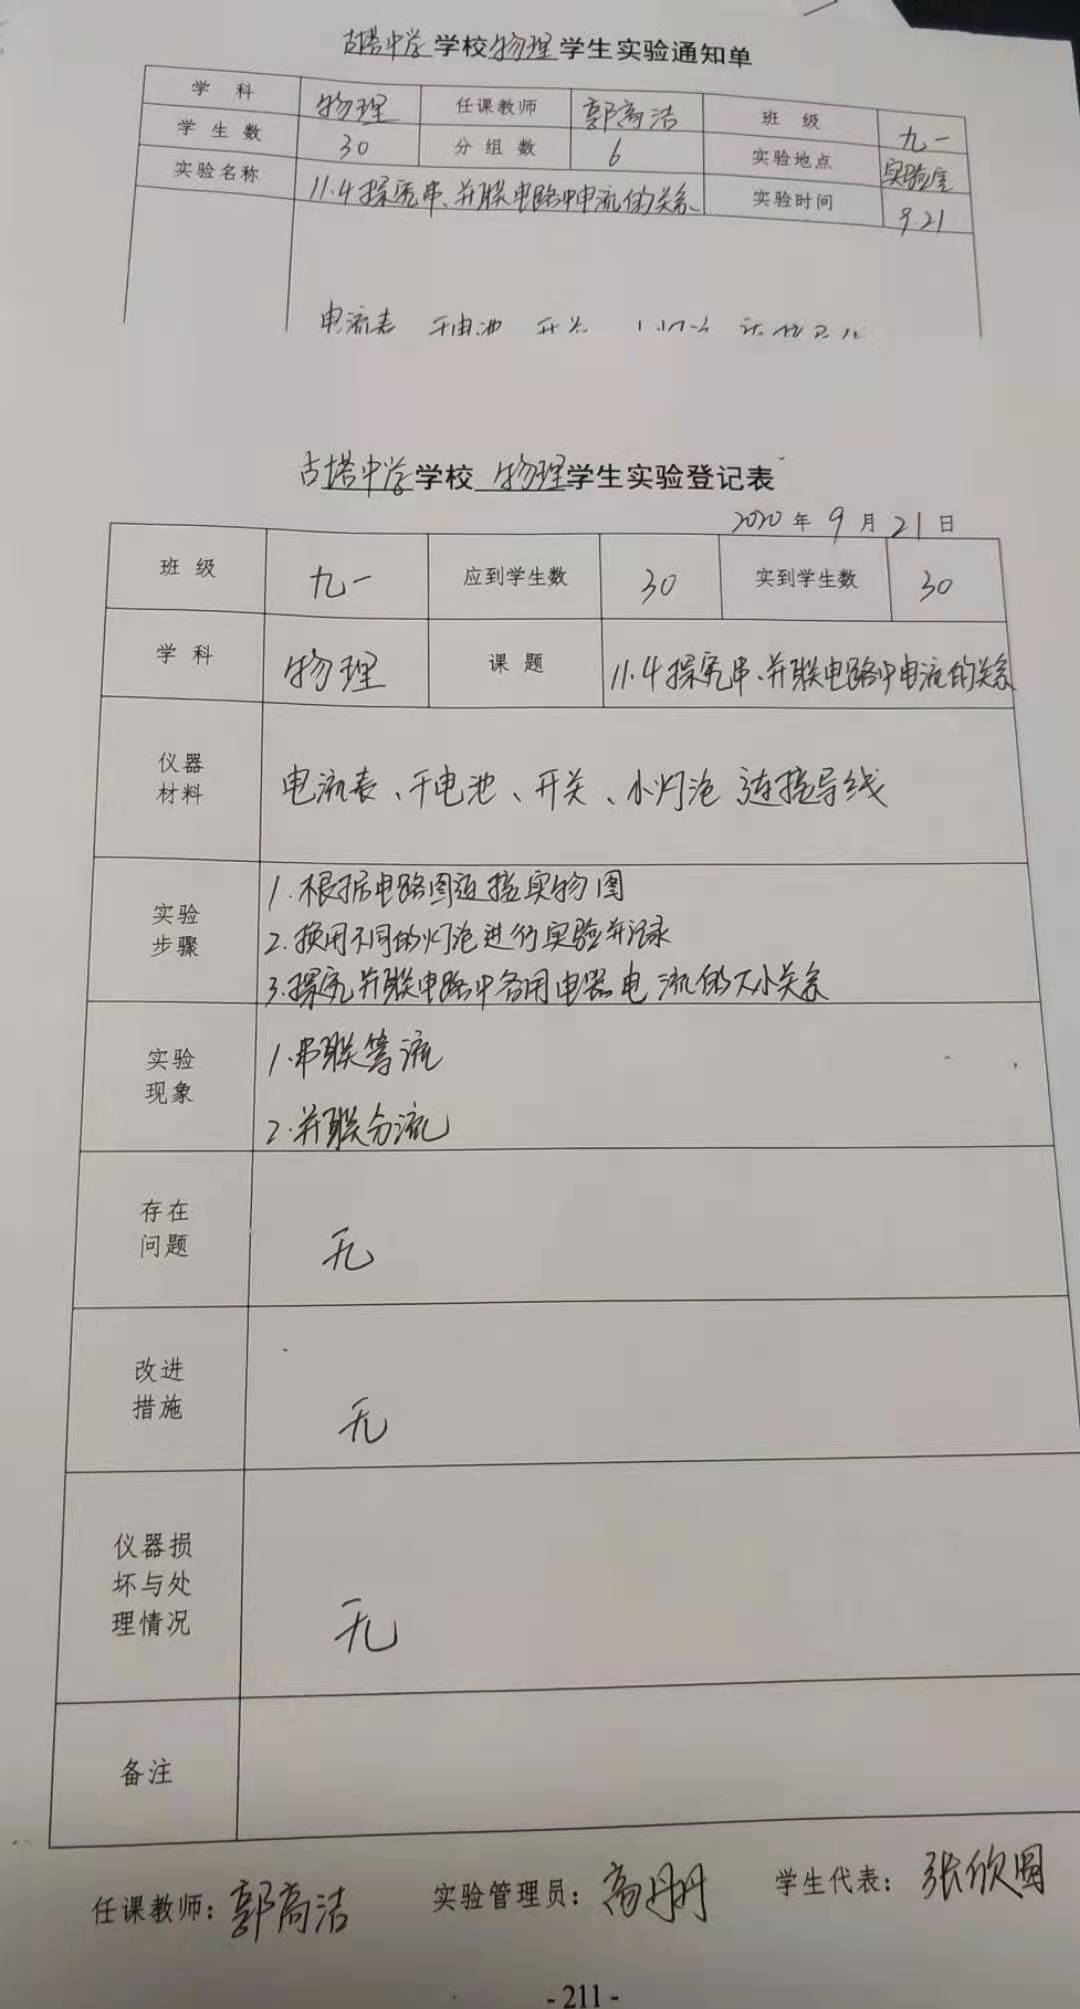 古塔中学学校物理学生实验通知单
学科 物理 任课教师 郭高洁 班级 九一
学生数 30 分组数 6 实验地点 实验室
实验名称 11.4探究串、并联电路中电流的关系 实验时间 9.21
电流表 干电池 开关
古塔中学学校 物理学生实验登记表
2020年9月21日
班级 九一 应到学生数 30 实到学生数 30
学科 物理 课题 11.4探究串、并联电路中电流的关系
仪器材料 电流表、干电池、开关、小灯泡 连接导线
实验步骤
1.根据电路图连接实物图
2.换用不同的灯泡进行实验并记录
3.探究并联电路中各用电器电流的大小关系
实验现象
1.串联等流
2.并联分流
存在问题 无
改进措施 无
仪器损坏与处理情况 无
备注
任课教师：郭高洁 实验管理员：高丹丹 学生代表：张欣圆
- 211 -